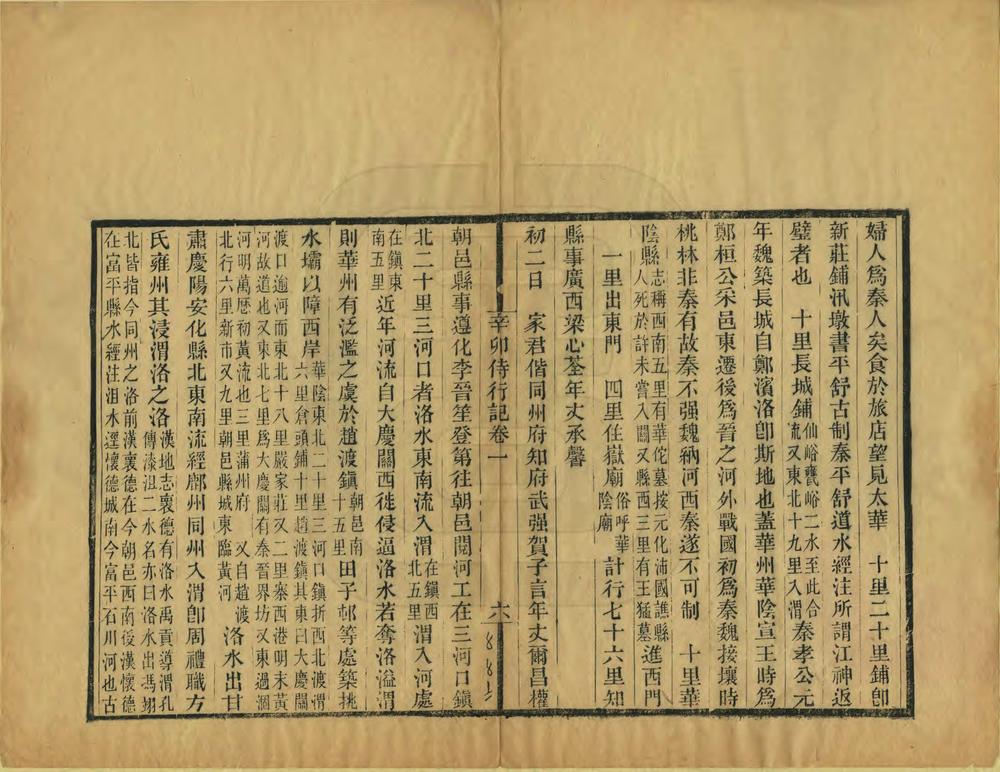 婦人爲秦人矣食於旅店望見太華　十里二十里鋪卽
新莊鋪汛墩書平舒古制秦平舒道水經注所謂江神返
璧者也　十里長城鋪仙峪甕峪二水至此合流又東北十九里入渭秦孝公元
年魏築長城自鄭濱洛卽斯地也蓋華州華陰宣王時爲
鄭桓公采邑東遷後爲晉之河外戰國初爲秦魏接壤時
桃林非秦有故秦不强魏納河西秦遂不可制　十里華
陰縣志稱西南五里有華佗墓按元化沛國譙縣人死於許未嘗入關又縣西三里有王猛墓進西門
一里出東門　四里住嶽廟俗呼華陰廟計行七十六里知
縣事廣西梁心荃年丈承馨
初二日　家君偕同州府知府武强賀子言年丈爾昌權
辛卯侍行記卷一　六
朝邑縣事遵化李晉笙登第往朝邑閱河工在三河口鎭
北二十里三河口者洛水東南流入渭在鎭西北五里渭入河處
在鎭東南五里近年河流自大慶關西徙侵逼洛水若奪洛溢渭
則華州有泛濫之虞於趙渡鎭朝邑南十五里田子邨等處築挑
水壩以障西岸華陰東北二十里三河口鎭折西北渡渭六里倉頭鋪十里趙渡鎭其東曰大慶關
渡口逾河而東北十八里嚴家莊又二里寨西港明末黃河故道也又東北七里爲大慶關有秦晉界坊又東過涸
河明萬厯初黃流也三里蒲州府　又自趙渡北行六里新市又九里朝邑縣城東臨黃河洛水出甘
肅慶陽安化縣北東南流經鄜州同州入渭卽周禮職方
氏雍州其浸渭洛之洛漢地志褱德有洛水禹貢導渭孔傳漆沮二水名亦曰洛水出馮翊
北皆指今同州之洛前漢褱德在今朝邑西南後漢懷德在富平縣水經注沮水逕懷德城南今富平石川河也古